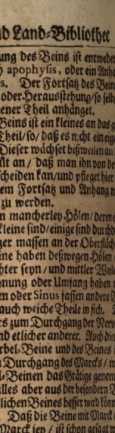 d Land-Bibliothec
ung des Beins ist entweder
apophysis, oder ein Anhang
s. Der Fortsatz des Bein
oder Herausstehung/so selb
ener Theil anhänget.
Beins ist ein kleines an das
heil/so/daß es nicht ein eig
Dieser wächset bißweilen an
üt an/daß man ihn von de
cheiden kan/und pfleget hier
em Fortsatz und Anhang
zu werden.
n mancherley Hölen/derer
kleine sind/einige sind durch
zer massen an der Oberfläch
ine haben deßwegen Hölen
hter seyn/und mittler Weil
nung oder Umfang haben
en oder Sinus fassen andere
auch weiche Theile in sich.
s zum Durchgang der Nerv
nd etlicher anderer. Auch die
rbel-Beine und des Beines
n Durchgang des Marcks/
l-Beinen das Grätige genen
lles aber aus der besondern
lichen Beines besser wird kön
Daß die Beine mit Marck
Marck sey/ist schon gesagt